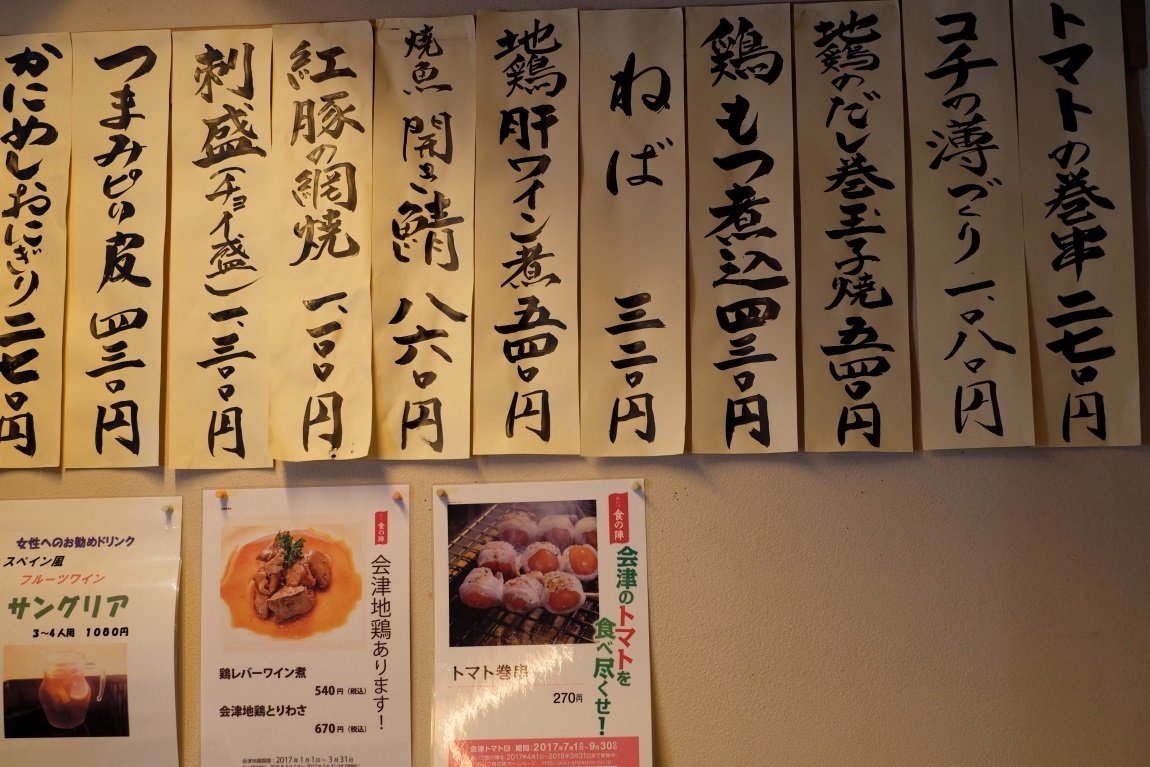 トマトの巻串 二七〇円
コチの薄づくり 一、〇八〇円
地鶏のだし巻玉子焼 五四〇円
鶏もつ煮込 四三〇円
ねば 三二〇円
地鶏肝ワイン煮 五四〇円
焼魚 開き鯖 八六〇円
紅豚の網焼 一、一〇〇円
刺盛(チョイ盛) 一、三〇〇円
つまみピリ皮 四三〇円
かにめしおにぎり 二七〇円
女性へのお勧めドリンク
スペイン風
フルーツワイン
サングリア
3〜4人用 1060円
食の陣
会津地鶏あります!
鶏レバーワイン煮
540円(税込)
会津地鶏とりわさ
670円(税込)
2017年1月1日〜3月31日
食の陣
会津のトマトを
食べ尽くせ!
トマト巻串
270円
会津トマト 期間:2017年7月1日〜9月30日